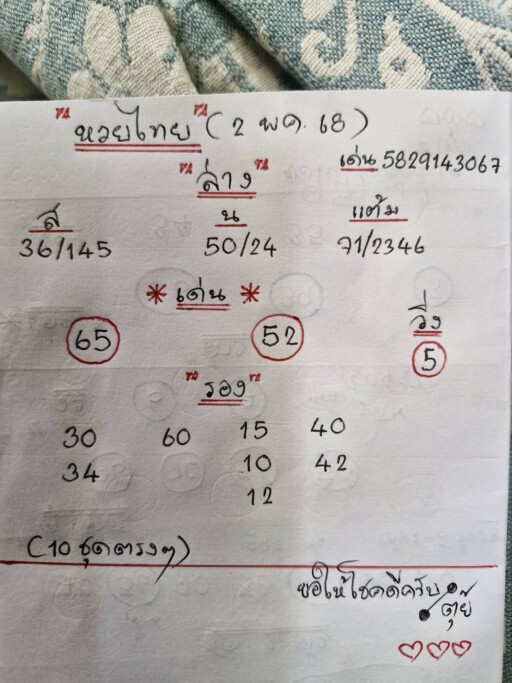 หวยไทย (2 พค. 68)
เด่น 5829143067
ล่าง
ส น แต้ม
36/145 50/24 71/2346
* เด่น *
วิ่ง
65 52 5
รอง
30 60 15 40
34 10 42
12
(10 ชุดตรงๆ)
ขอให้โชคดีครับ
ตุ๊ย์